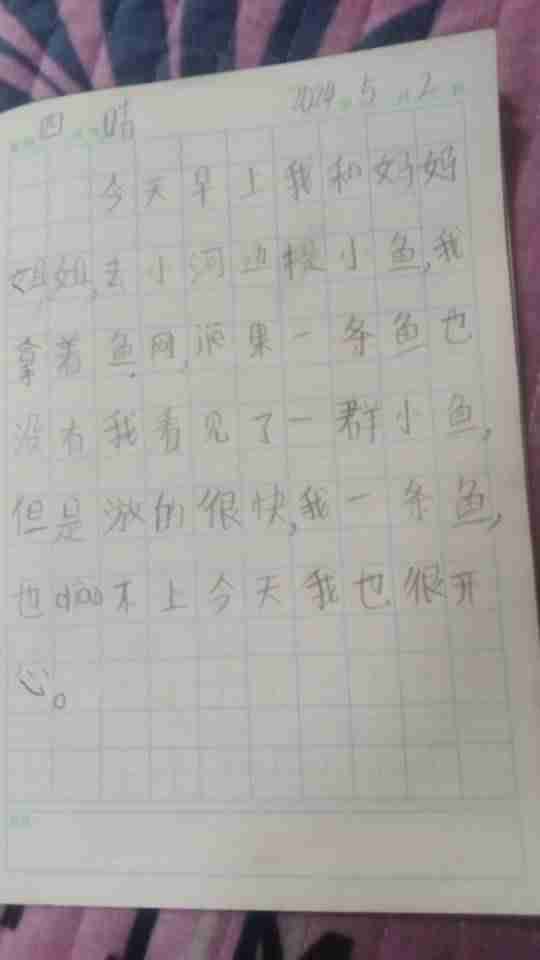 四 晴 2024年5月2日
今天早上我和妈妈
姐姐,去小河边捉小鱼,我
拿着鱼网,结果一条鱼也
没有我看见了一群小鱼,
但是游的很快,我一条鱼,
也diao不上今天我也很开
心。